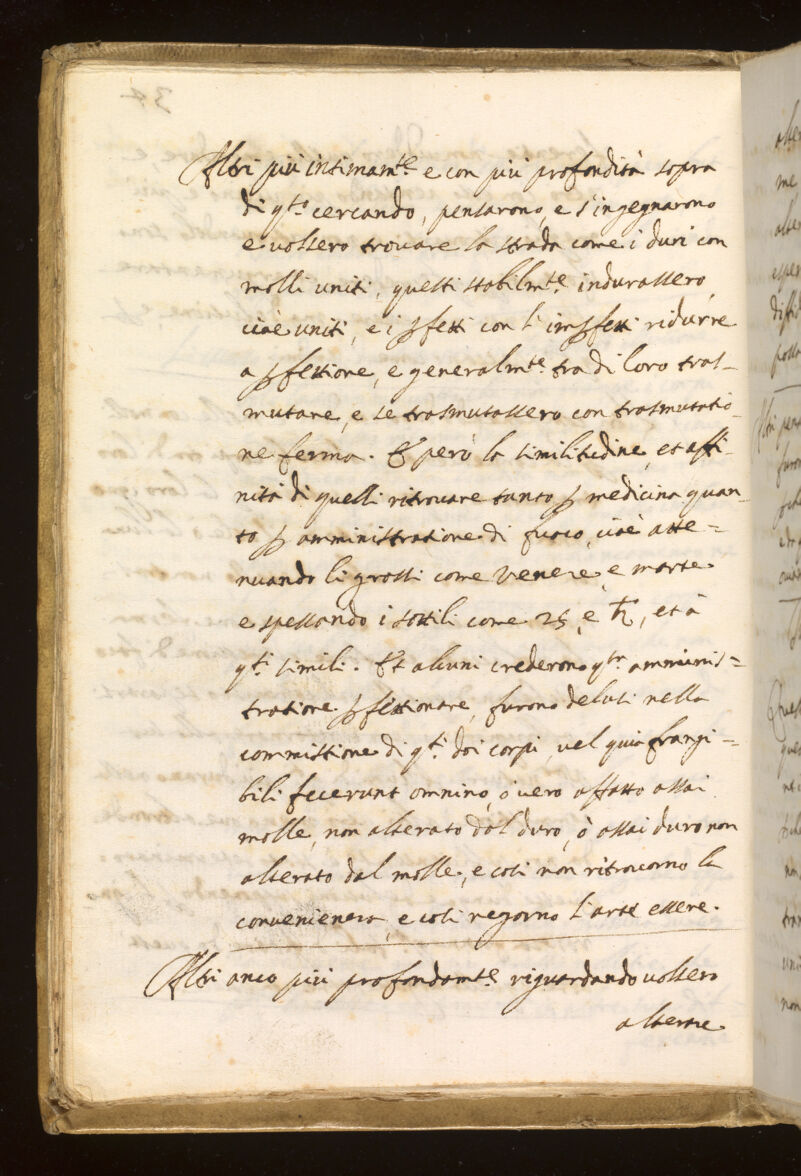 Altri più intimam.te e con più profondità sopra
di q.to cercando, pensarono, e s'ingegnarono
e volsero trovare la strada come i duri con
molli uniti, questi stabilm.te indurassero,
cioè uniti, e i ꝑfetti con l'imꝑfetti ridurre
a ꝑfettione, e generalm.te tra di loro tras-
mutare, e se trasmutassero con trasmutatio-
ne ferma. Et però la similitudine, et affi-
nità di quelli ritrovare tanto ꝑ medicina quan-
to ꝑ amministratione di fuoco, cioè atte=
nuando li grossi come Venere, e marte.
e spessando i sottili come ♃, e ♄, et à
q.ti simili. Et alcuni crederono q.ta amminis=
tratione ꝑfettionare, furono delusi nella
commistione di q.ti doi corpi, vel quia frangi=
bili fecerunt omnino, ò vero affatto assai
molle, non alterato dal duro, ò assai duro non
alterato dal molle, e cosi non ritrovorno la
convenienza, e cosi negorno l'arte essere.
Altri anco più profondam.te riguardando volsero
alterare.
34